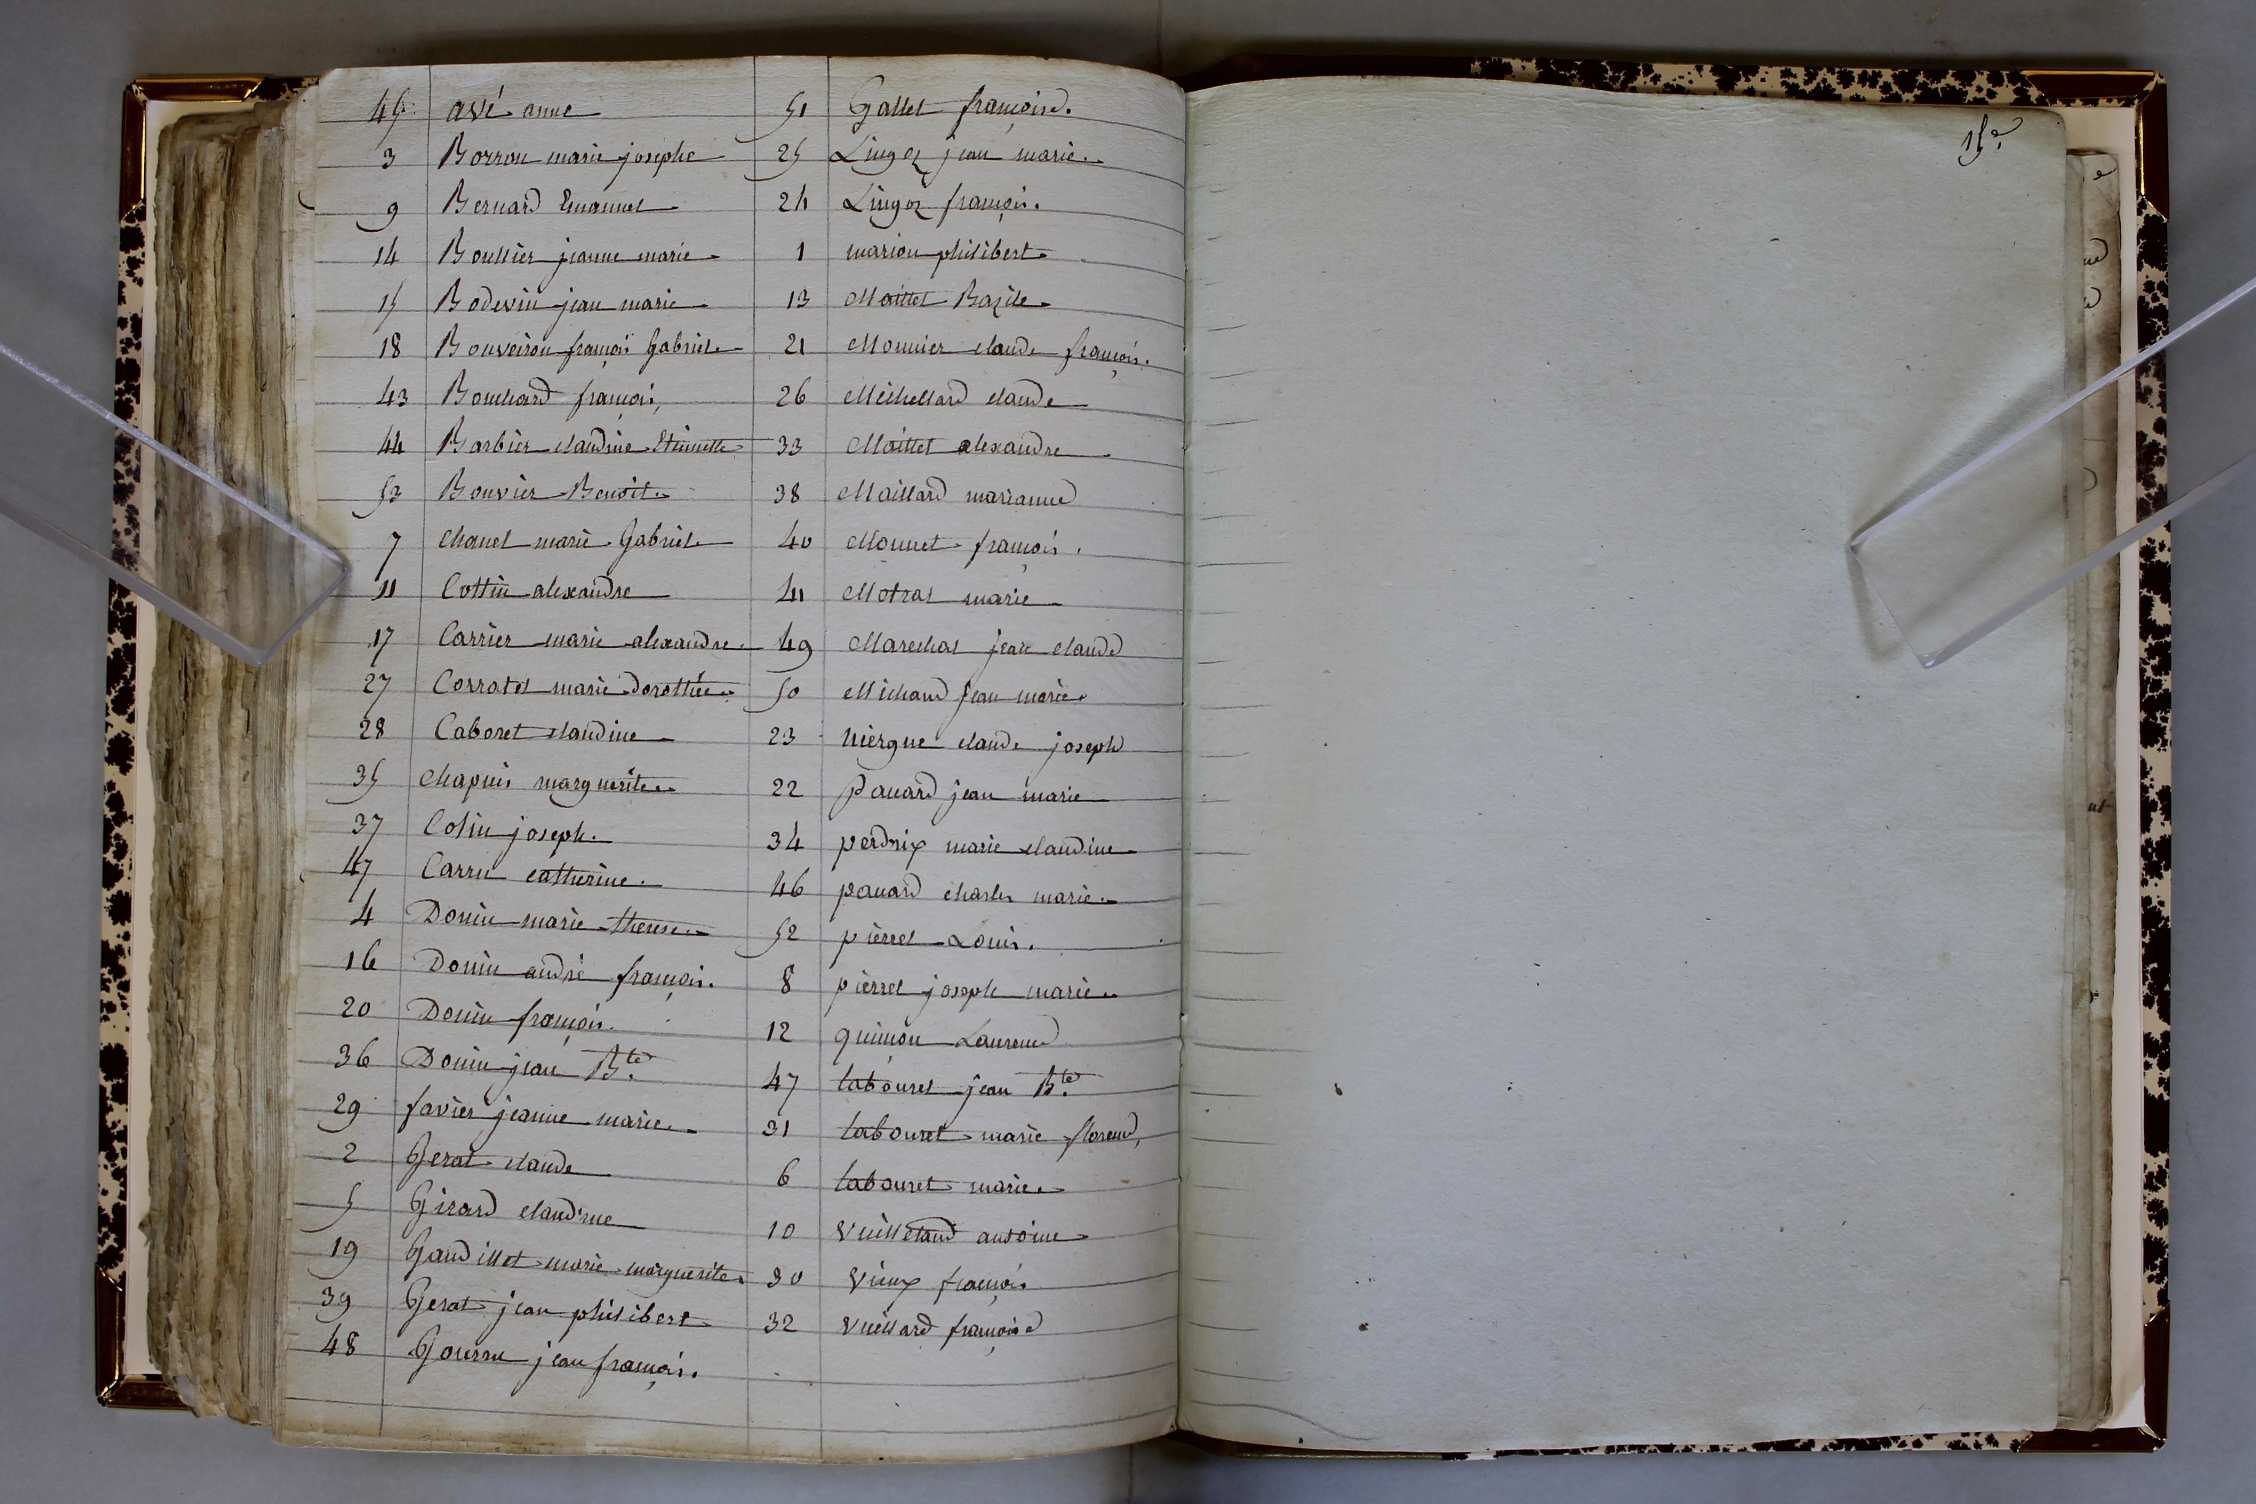 45 avé anne
3 Borron marie josephe
9 Bernard Emanuel
14 Boullier jeanne marie
15 Bodevin jean marie
18 Bouveiron françois Gabriel
43 Bouchard françois
44 Barbier claudine Etiennette
53 Bouvier Benoit
7 Chanel marie Gabriel
11 Cottin alexandre
17 Carrier marie alexandre
27 Corratel marie dorothée
28 Caboret claudine
35 Chapuis marguerite
37 Colin joseph
47 Carru catherine
4 Donin marie therese
16 Donin andré françois
20 Donin françois
36 Donin jean Bte
29 favier jeanne marie
2 Gerat claude
5 Girard claudine
19 Gaudillet marie marguerite
39 Gerat jean philibert
48 Gourru jean françois
51 Gallet françoise
25 Lingoz jean marie
24 Lingoz françois
1 marion philibert
13 Maillet Bazile
21 Monnier claude françois
26 Michellard claude
33 Maillet alexandre
38 Maillard marianne
40 Monnet françois
41 Motral marie
49 Marechal jean claude
50 Michaud jean marie
23 niergue claude joseph
22 Pauard jean marie
34 perdrix marie claudine
46 pauard charles marie
52 pierrel Louis
8 pierrel joseph marie
12 quinson Laurence
47 tabouret jean Bte
31 tabouret marie florence
6 tabouret marie
10 Vuilletaud antoine
30 Vieux françois
32 Vuillard françoise